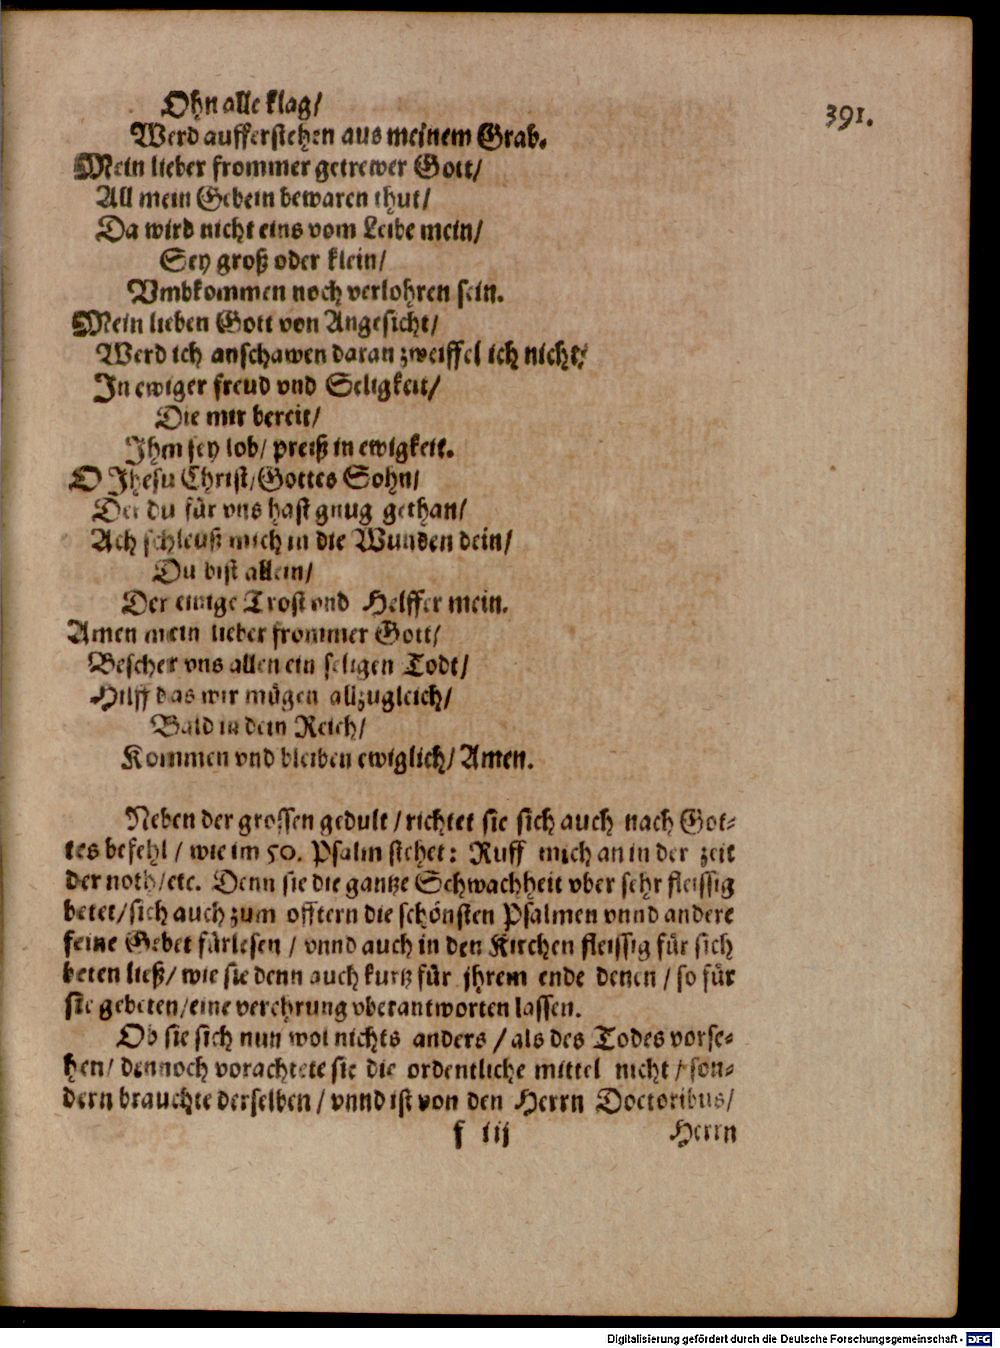 391.
Ohn alle klag/
Werd aufferstehen aus meinem Grab.
Mein lieber frommer getrewer Gott/
All mein Gebein bewaren thut/
Da wird nicht eins vom Leibe mein/
Sey groß oder klein/
Vmbkommen noch verlohren sein.
Mein lieben Gott von Angesicht/
Werd ich anschawen daran zweiffel ich nicht/
In ewiger freud vnd Seligkeit/
Die mir bereit/
Ihm sey lob/ preiß in ewigkeit.
O Jhesu Christ/ Gottes Sohn/
Der du für vns hast gnug gethan/
Ach schleuß mich in die Wunden dein/
Du bist allein/
Der einige Trost vnd Helffer mein.
Amen mein lieber frommer Gott/
Bescher vns allen ein seligen Todt/
Hilff das wir mügen allzugleich/
Bald in dein Reich/
Kommen vnd bleiben ewiglich/ Amen.
Neben der grossen gedult / richtet sie sich auch nach Got-
tes befehl / wie im 50. Psalm stehet: Ruff mich an in der zeit
der noth/ etc. Denn sie die gantze Schwachheit vber sehr fleissig
betet/ sich auch zum offtern die schönsten Psalmen vnnd andere
feine Gebet fürlesen / vnnd auch in den Kirchen fleissig für sich
beten ließ/ wie sie denn auch kurtz für jhrem ende denen / so für
sie gebeten/ eine verehrung vberantworten lassen.
Ob sie sich nun wol nichts anders / als des Todes vorse-
hen/ dennoch vorachtete sie die ordentliche mittel nicht / son-
dern brauchte derselben / vnnd ist von den Herrn Doctoribus/
f iij Herrn
Digitalisierung gefördert durch die Deutsche Forschungsgemeinschaft - DFG